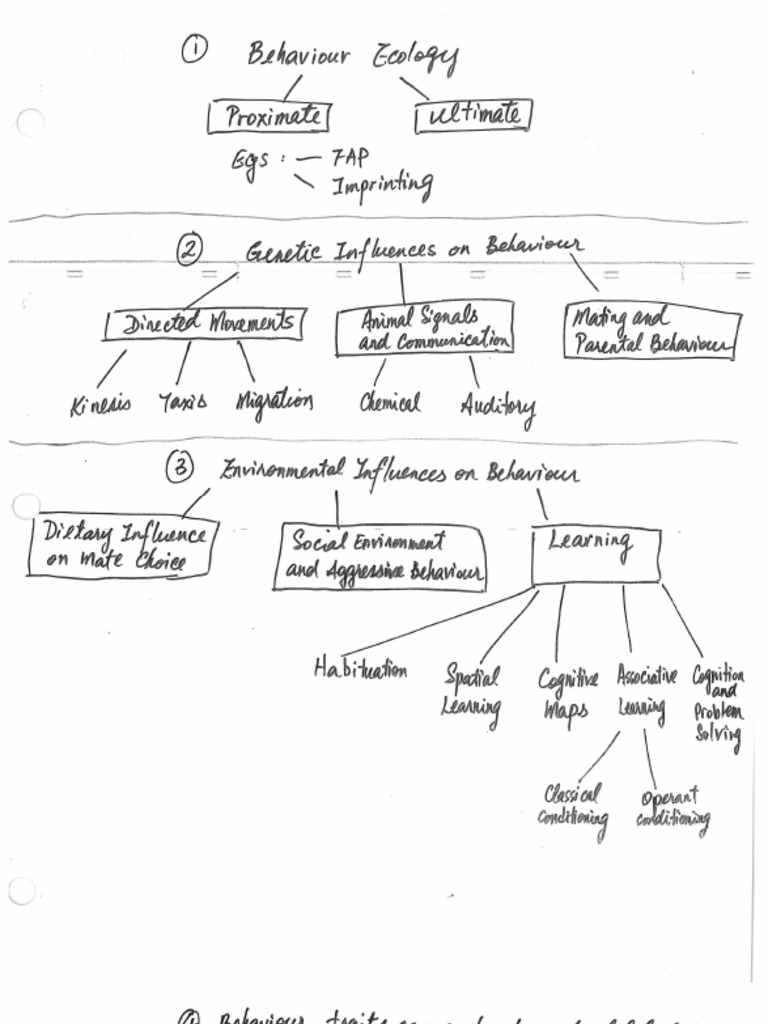 ① Behaviour Ecology
Proximate
Ultimate
Egs : — FAP
Imprinting
② Genetic Influences on Behaviour
Directed Movements
Animal Signals
and Communication
Mating and
Parental Behaviour
Kinesis
Taxis
Migration
Chemical
Auditory
③ Environmental Influences on Behaviour
Dietary Influence
on Mate Choice
Social Environment
and Aggressive Behaviour
Learning
Habituation
Spatial
Learning
Cognitive
Maps
Associative
Learning
Cognition
and
Problem
Solving
Classical
conditioning
Operant
conditioning
④ Behaviour traits can